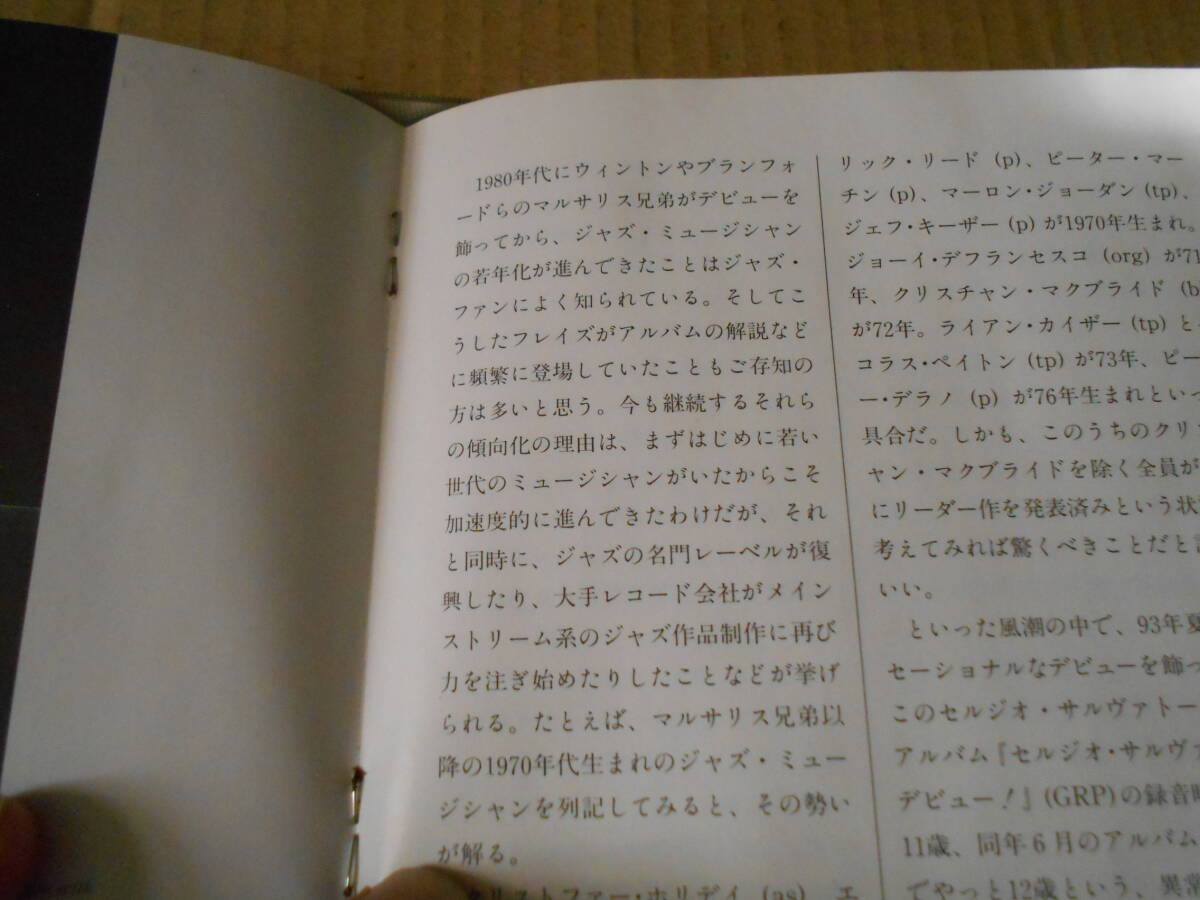 1980年代にウィントンやブランフォ
ードらのマルサリス兄弟がデビューを
飾ってから、ジャズ・ミュージシャン
の若年化が進んできたことはジャズ・
ファンによく知られている。そしてこ
うしたフレイズがアルバムの解説など
に頻繁に登場していたこともご存知の
方は多いと思う。今も継続するそれら
の傾向化の理由は、まずはじめに若い
世代のミュージシャンがいたからこそ
加速度的に進んできたわけだが、それ
と同時に、ジャズの名門レーベルが復
興したり、大手レコード会社がメイン
ストリーム系のジャズ作品制作に再び
力を注ぎ始めたりしたことなどが挙げ
られる。たとえば、マルサリス兄弟以
降の1970年代生まれのジャズ・ミュー
ジシャンを列記してみると、その勢い
が解る。
クリストファー・ホリデイ (as)、エ
リック・リード (p)、ピーター・マー
チン (p)、マーロン・ジョーダン (tp)、
ジェフ・キーザー (p) が1970年生まれ。
ジョーイ・デフランセスコ (org) が71
年、クリスチャン・マクブライド (b
が72年。ライアン・カイザー (tp) と
コラス・ペイトン (tp) が73年、ピー
ー・デラノ (p) が76年生まれといっ
具合だ。しかも、このうちのクリス
ャン・マクブライドを除く全員が
にリーダー作を発表済みという状
考えてみれば驚くべきことだと
いい。
といった風潮の中で、93年夏
セーショナルなデビューを飾っ
このセルジオ・サルヴァトー
アルバム『セルジオ・サルヴァ
デビュー！』(GRP) の録音時
11歳、同年6月のアルバム
でやっと12歳という、異常